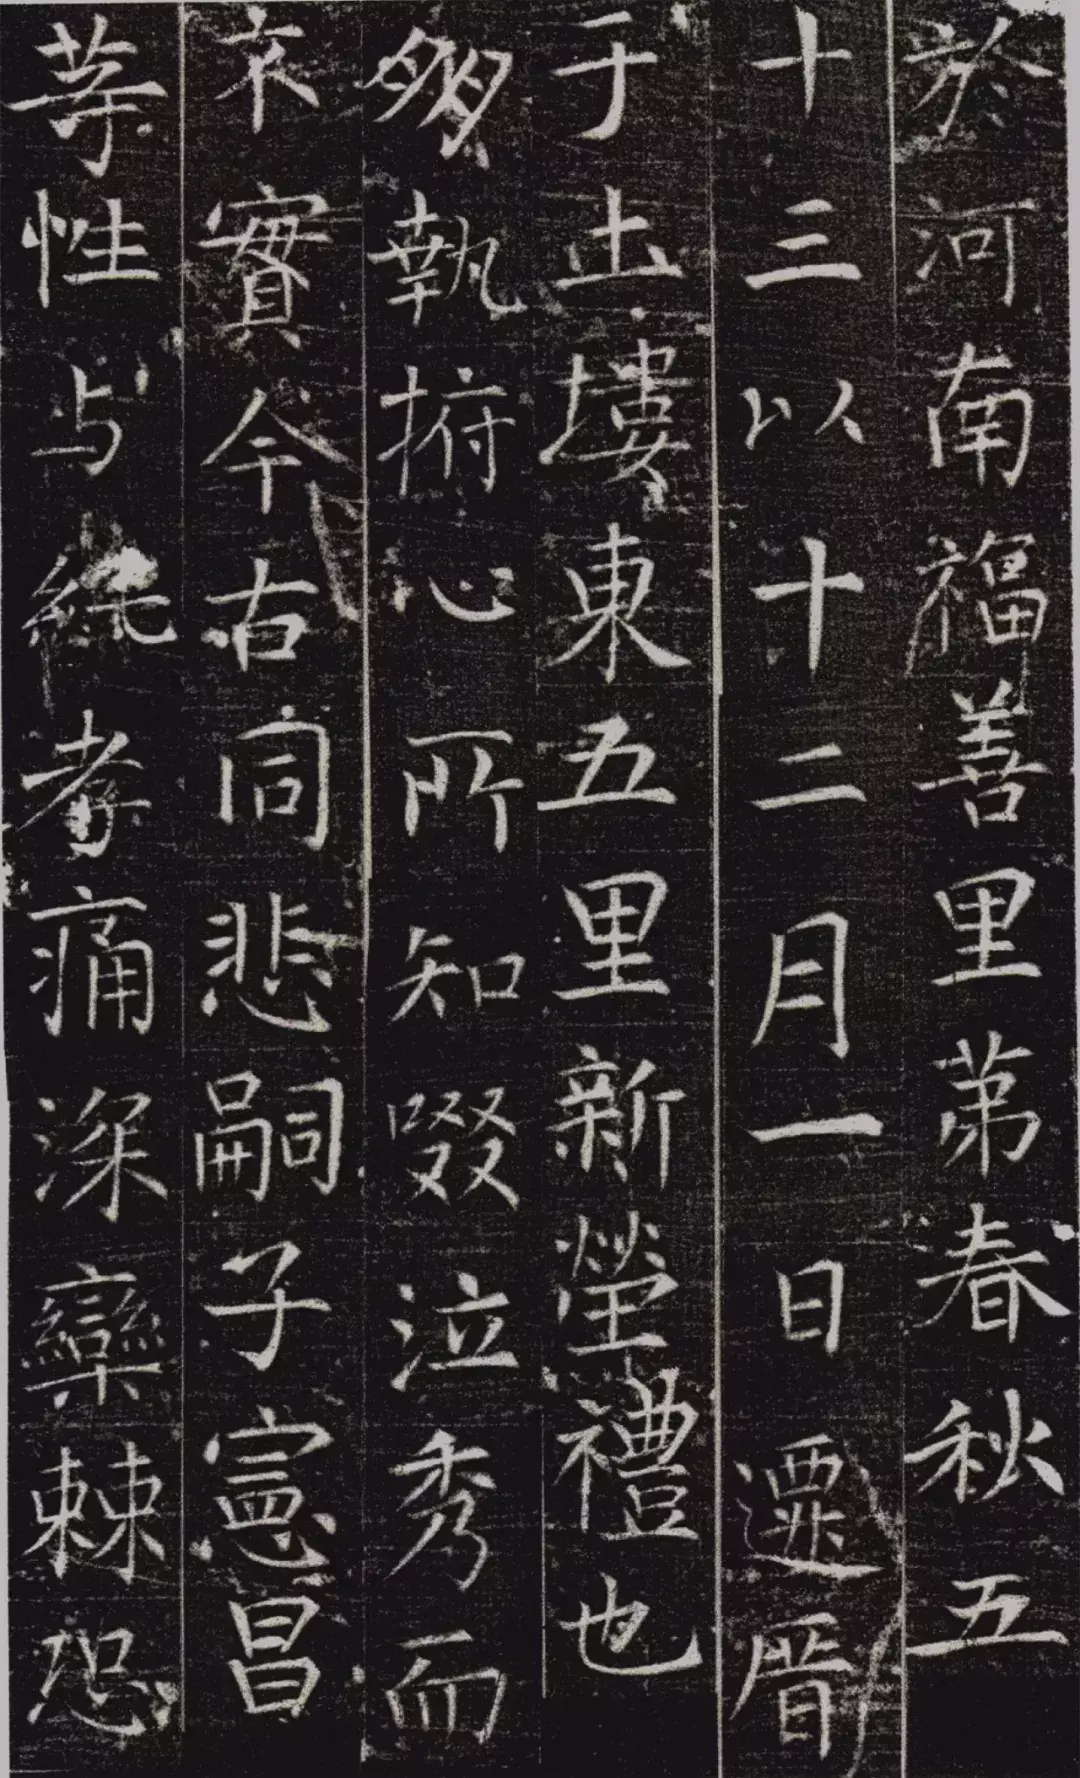 於河南福善里第春秋五
十三以十二月一日遷厝
于土塿東五里新塋禮也
朋執捬心所知啜泣秀而
不實今古同悲嗣子憲昌
等性与純孝痛深欒棘恐